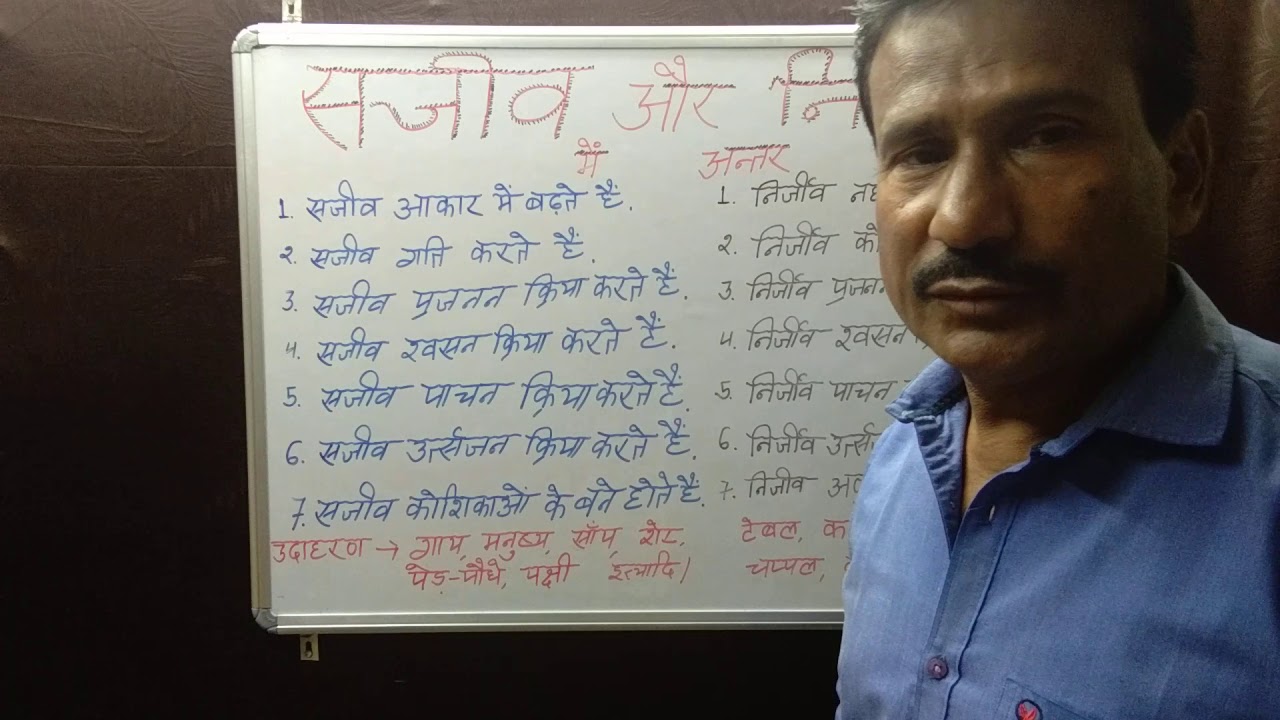 सजीव और नि
में अन्तर
1. सजीव आकार में बढ़ते हैं.
2. सजीव गति करते हैं.
3. सजीव प्रजनन क्रिया करते हैं.
4. सजीव श्वसन क्रिया करते हैं.
5. सजीव पाचन क्रिया करते हैं.
6. सजीव उर्त्सजन क्रिया करते हैं.
7. सजीव कोशिकाओं के बने होते हैं.
उदाहरण → गाय, मनुष्य, साँप, शेर,
पेड़-पौधे, पक्षी इत्यादि।
1. निर्जीव
2. निर्जीव
3. निर्जीव प्रजनन
4. निर्जीव श्वसन
5. निर्जीव पाचन
6. निर्जीव
7. निर्जीव
टेबल,
चप्पल,